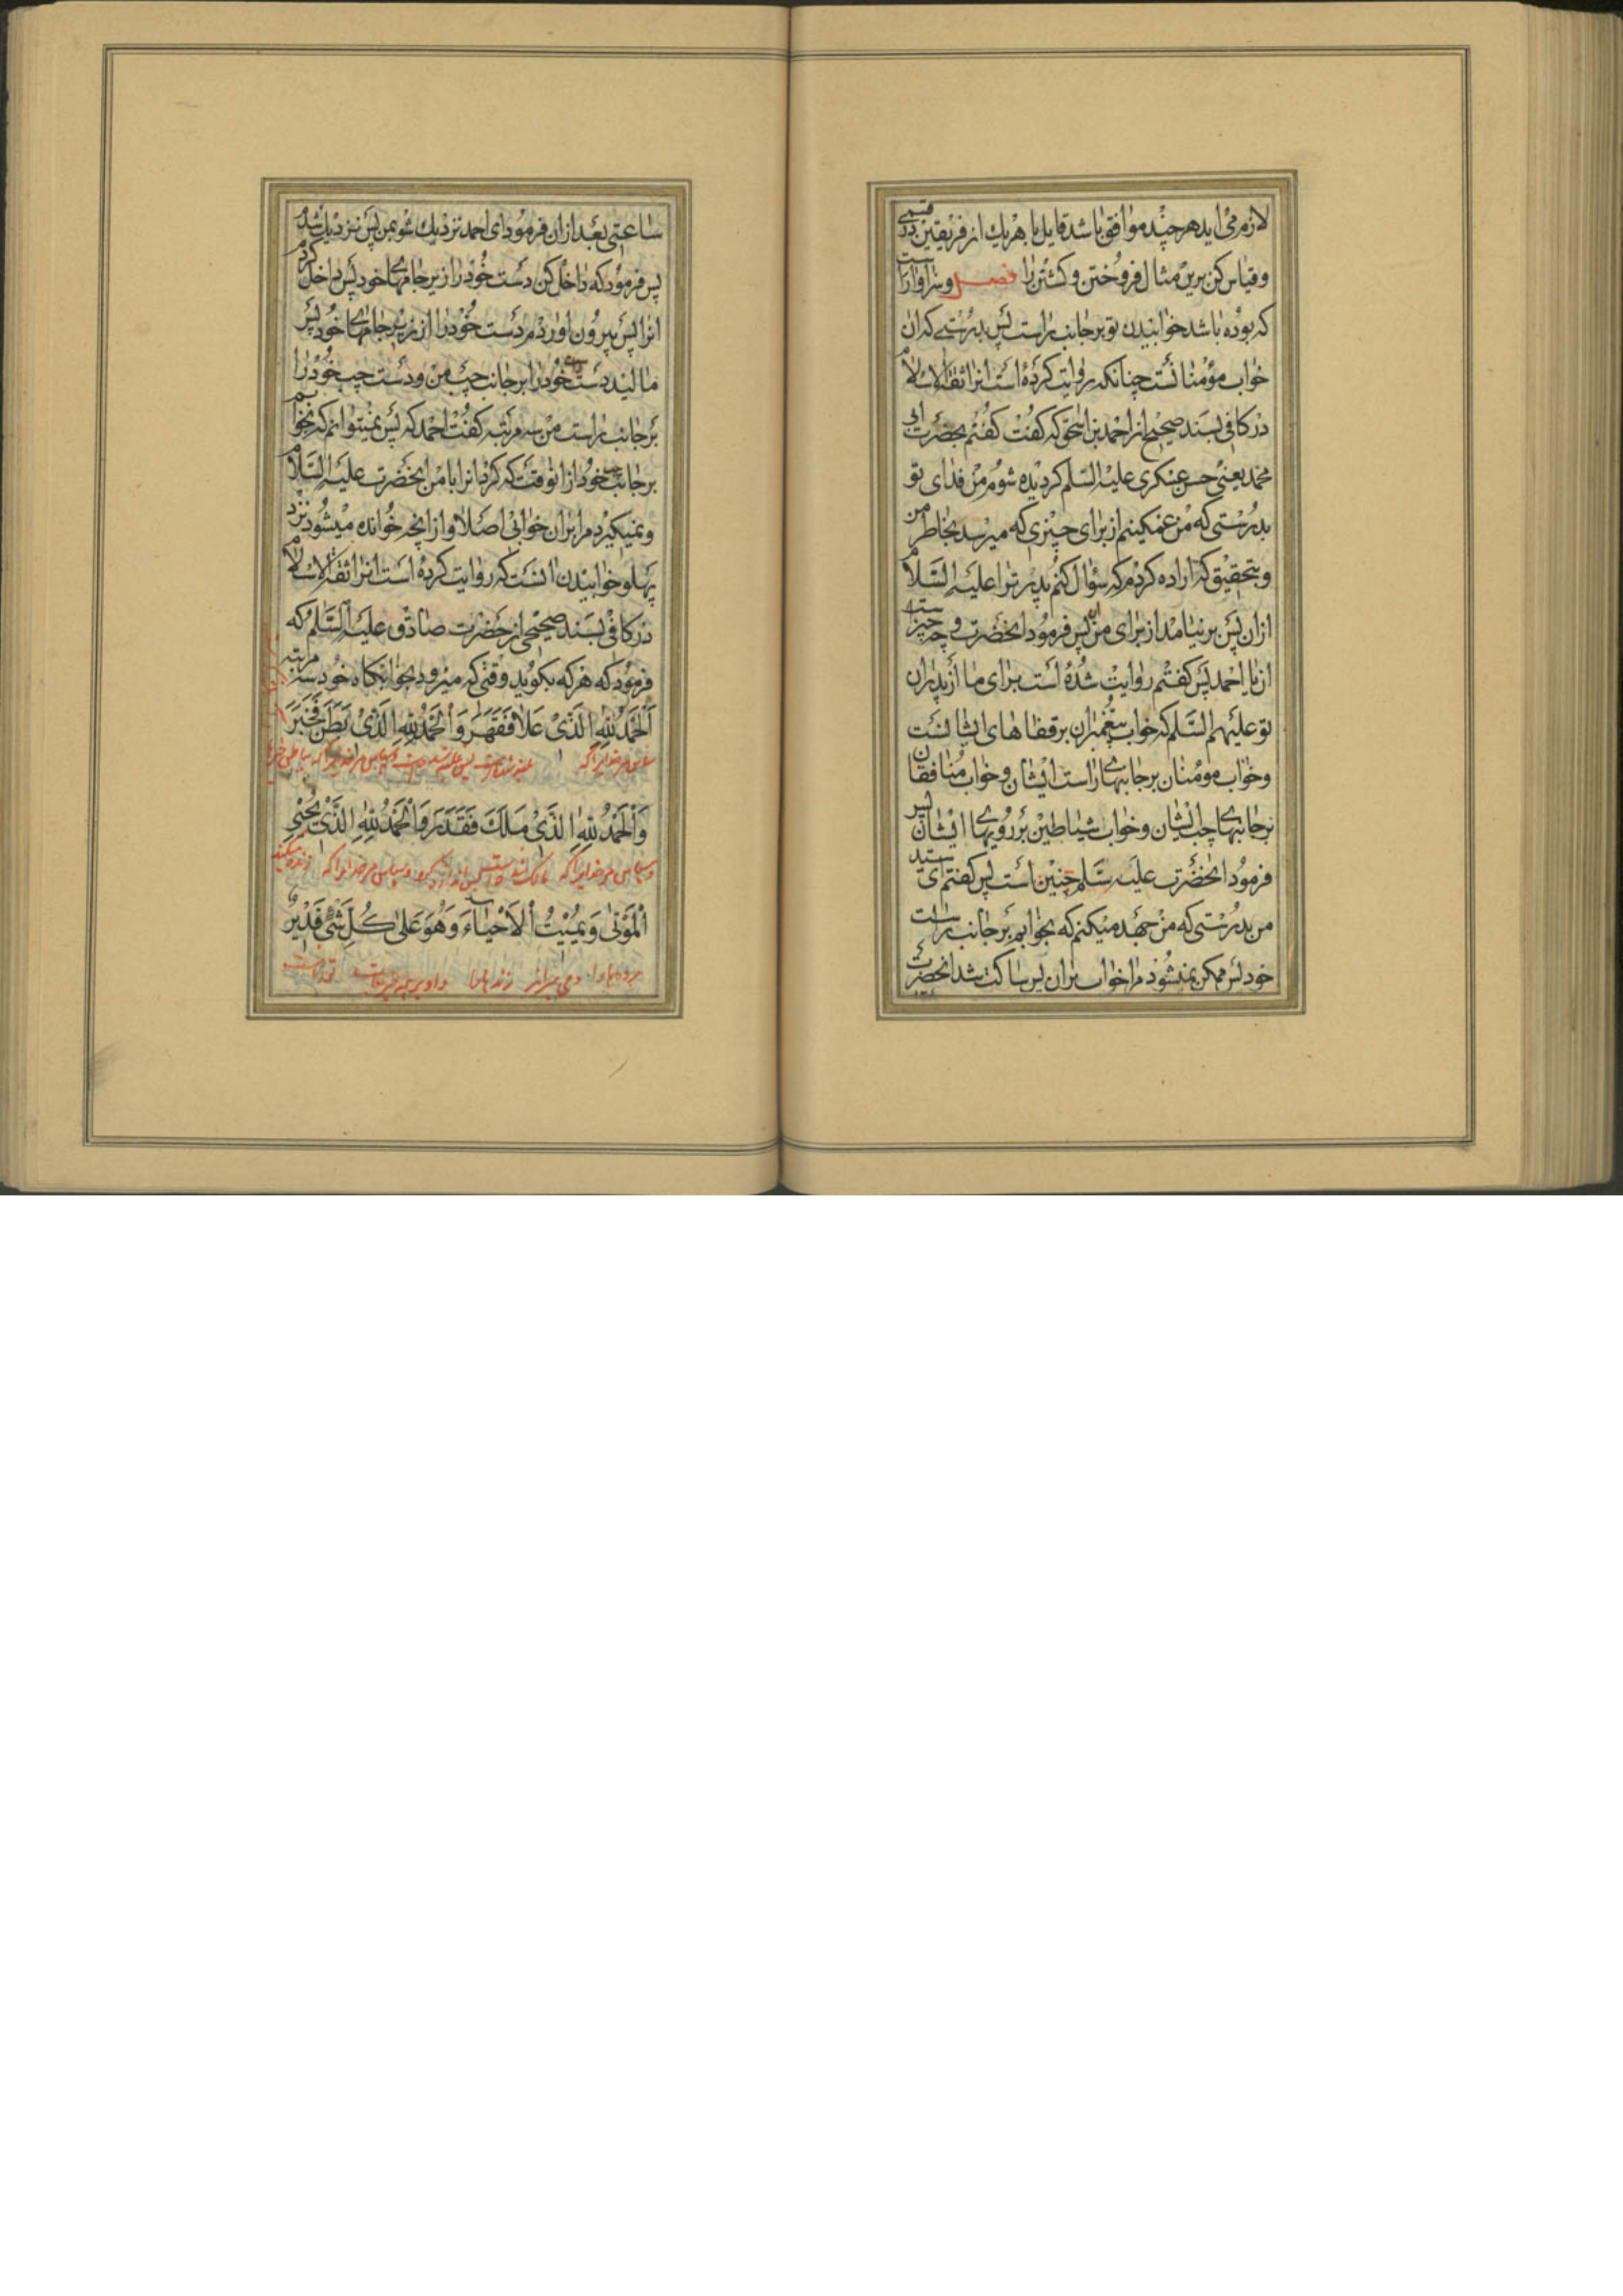 لازم می‌اید هر چند موافق باشد قایل با هر یک از فریقین در قسمی
و قیاس کن برین مثال فروختن و کشتن را فصل و سزاوار است
که بوده باشد خوابیدن تو بر جانب راست پس بدرستی که ان
خواب مؤمنانست چنانکه روایت کرده است انرا ثقة الاسلام
در کافی بسند صحیح از احمد بن اسحق که گفت گفتم بحضرت ابی
محمد یعنی حسن عسکری علیه السلم کردیده شوم من فدای تو
بدرستی که من غمکینم از برای چیزی که میرسد بخاطر من
و بتحقیق که اراده کردم که سؤال کنم پدر ترا علیه السلام
از ان پس بر نیامد از برای من ان پس فرمود انحضرت و چه چیز است
ان یا احمد پس کفتم روایت شده است برای ما از پدران
تو علیهم السلم که خواب پیغمبران بر قفاهای ایشانست
و خواب مومنان بر جانبهای راست ایشان و خواب منافقان
بر جانبهای چپ ایشان و خواب شیاطین بر رویهای ایشان پس
فرمود انحضرت علیه سلم چنین است پس کفتم ای سید
من بدرستی که من جهد میکنم که بخوابم بر جانب راست
خود پس ممکن نمیشود مرا خواب بران پس ساکت شد انحضرت
ساعتی بعد از ان فرمود ای احمد نزدیک شو بمن پس نزدیک شدم
پس فرمود که داخل کن دست خود را زیر جامهای خود پس داخل کردم
انرا پس بیرون اورد دست خود را از زیر جامهای خود پس
مالید دست راست خود را بر جانب چپ من و دست چپ خود را
بر جانب راست من سه مرتبه کفت احمد که پس نمیتوانم که بخوابم
بر جانب چپ خود از انوقت که کرد انرا با من انحضرت علیه السلام
و نمیکیرد مرا بران خوابی اصلا و از انچه خوانده میشود نزد
پهلو خوابیدن انست که روایت کرده است انرا ثقة الاسلام
در کافی بسند صحیحی از حضرت صادق علیه السلم که
فرمود که هر که بکوید وقتی که میرود بخوابکاه خود سه مرتبه
اَلْحَمْدُ لِلّٰهِ الَّذی عَلَا فَقَهَرَ وَ الْحَمْدُ لِلّٰهِ الَّذی بَطَنَ فَخَبَرَ
سپاس مر خدایرا که
وَ الْحَمْدُ لِلّٰهِ الَّذی مَلَكَ فَقَدَرَ وَ الْحَمْدُ لِلّٰهِ الَّذی یُحْیِی
و سپاس مر خدایرا که مالک شد و سپاس مر خدایرا که زنده میکند
الْمَوْتٰی وَ یُمیتُ الْاَحْیٰاءَ وَ هُوَ عَلیٰ كُلِّ شَیْءٍ قَدیرٌ
مردها را و می میراند زندها را و او بر همه چیز تواناست